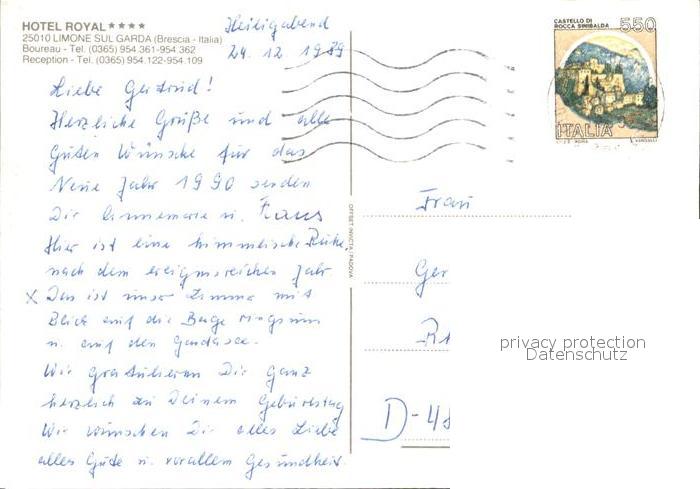 HOTEL ROYAL★★★★
25010 LIMONE SUL GARDA (Brescia - Italia)
Boureau - Tel. (0365) 954.361-954.362
Reception - Tel. (0365) 954.122-954.109
Heiligabend
24. 12. 1989
Liebe Gertrud!
Herzliche Grüße und alle
Guten Wünsche für das
Neue Jahr 1990 senden
Dir Annemarie u.
Hier ist eine himmlische Ruhe,
nach dem ereignisreichen Jahr
X Das ist unser Zimmer mit
Blick auf die Berge ringsum
u. auf den Gardasee.
Wir gratulieren Dir ganz
herzlich zu Deinem Geburtstag
Wir wünschen Dir alles Liebe
alles Gute u. vorallem Gesundheit.
OFFSET INVICTA / PADOVA
CASTELLO DI
ROCCA SINIBALDA
550
ITALIA
Frau
Ger
D-48
privacy protection
Datenschutz